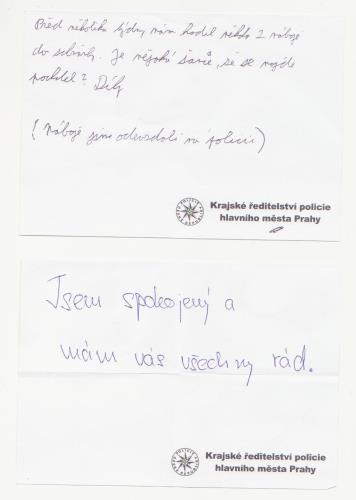 Před několika týdny nám hodil někdo 2 náboje
do schránky. Je nějaká šance, že se najde
pachatel? Díky
(Náboje jsme odevzdali na policii)
Krajské ředitelství policie
hlavního města Prahy
Jsem spokojený a
mám vás všechny rád.
Krajské ředitelství policie
hlavního města Prahy